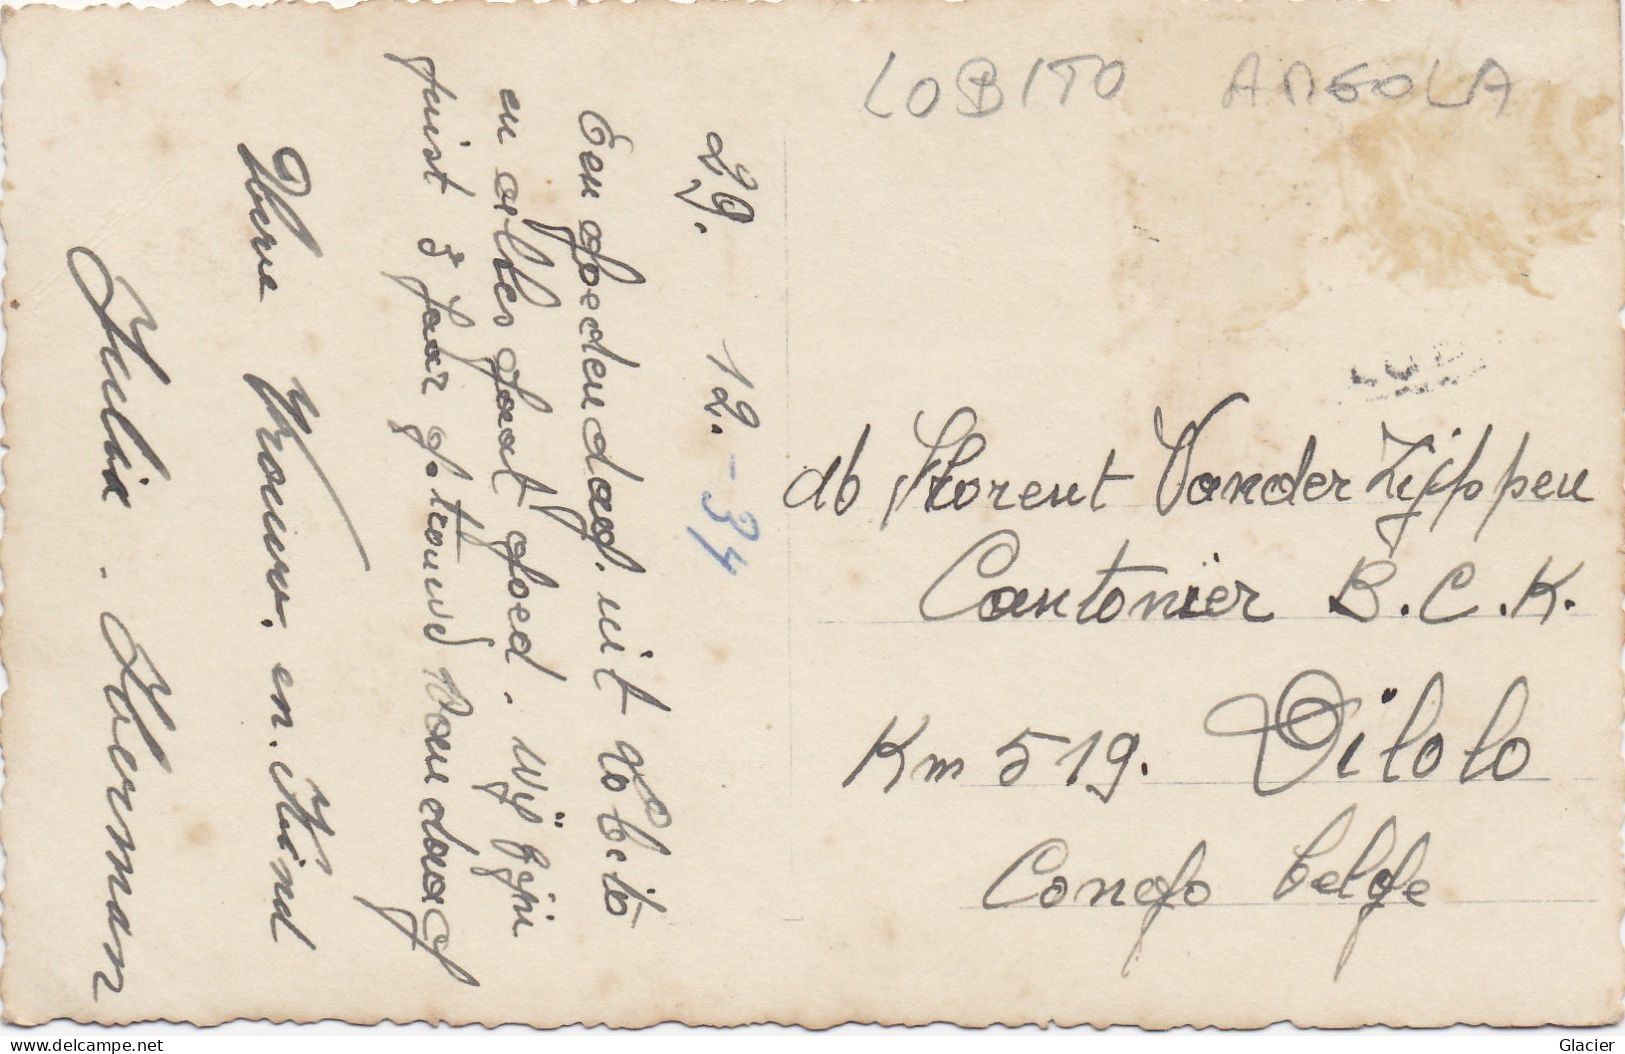 LOBITO ANGOLA
29. 12. - 34
Een goedendag. uit Lobito
en alles gaat goed. wij zijn
juist 3 jaar getrouwd van daag
Uwe Vrouw. en. Kind
Julia. Haerman
Florent Vander Zijppen
Cantonier B.C.K.
Km 519. Dilolo
Congo belge
www.delcampe.net
Glacier